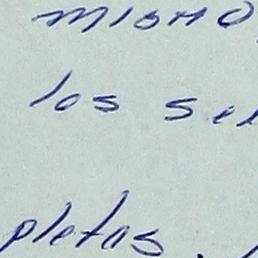 mismo
los se
pletas.